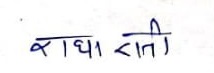 राधा रानी